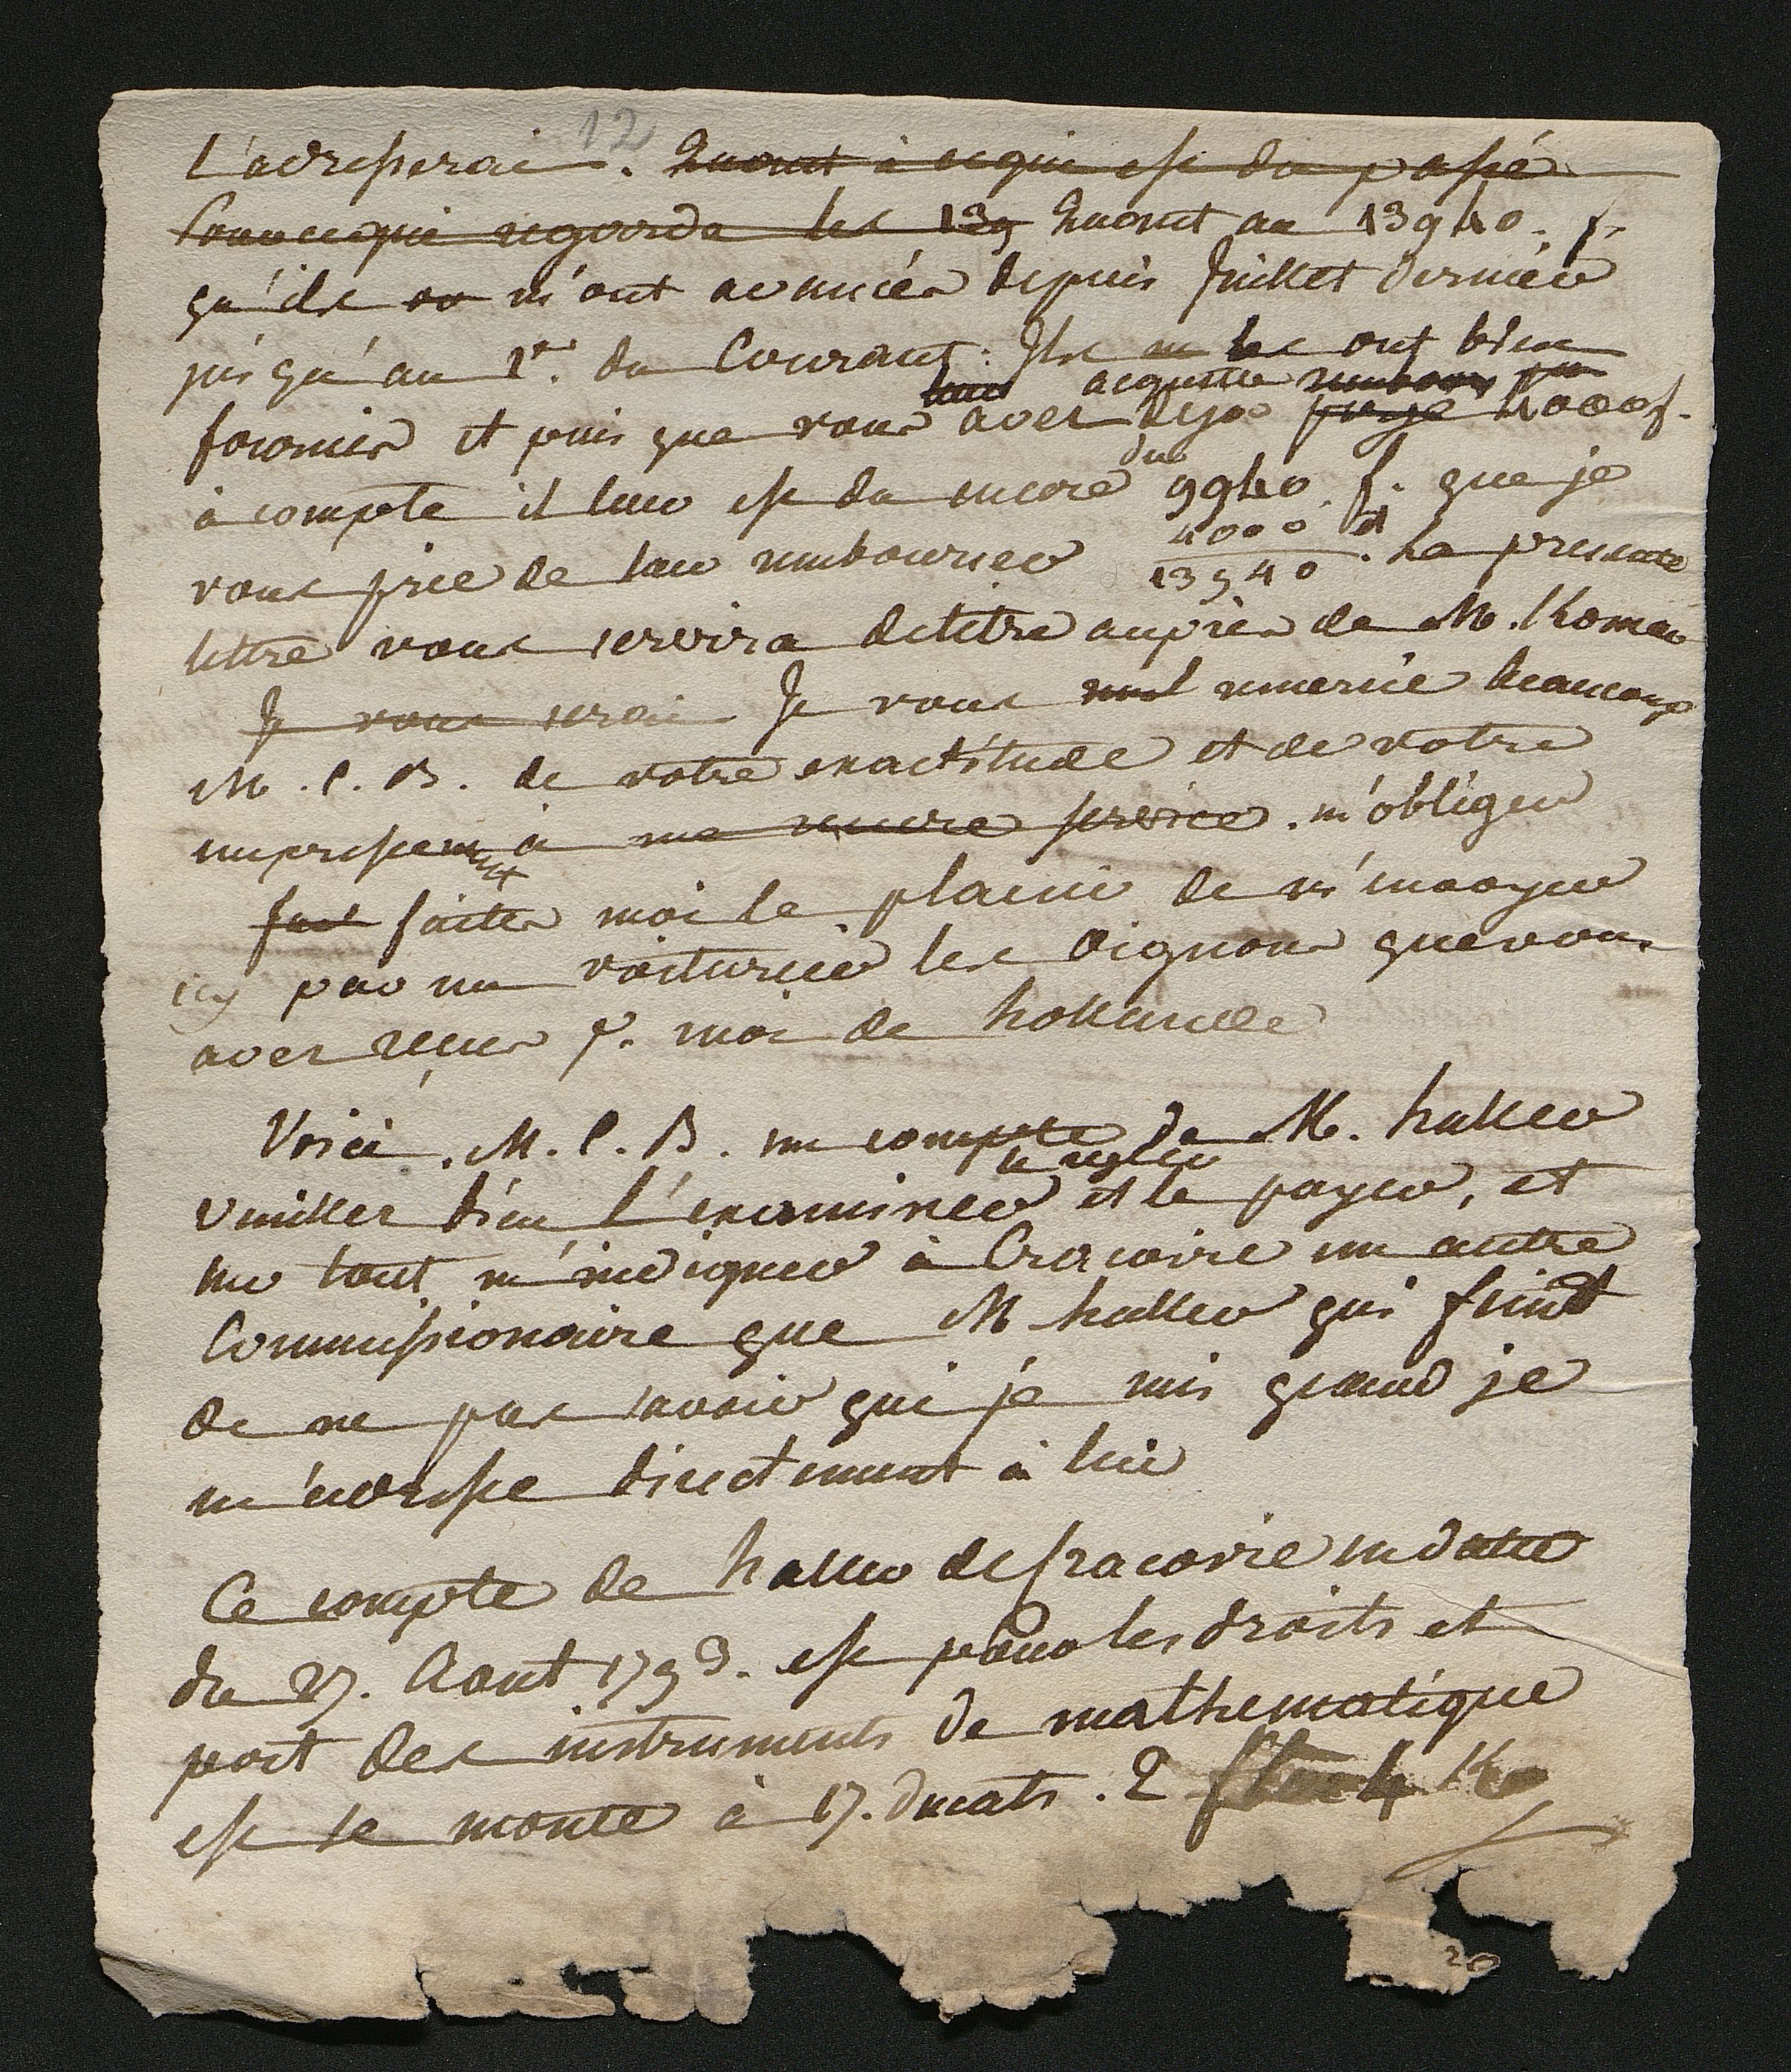 12
l'adresserai. Quant à ce qui est du passé
Pour ce qui regarde les 139 Quant au 13940. f.
qu'ils m'ont avancées depuis Juillet dernier
jusqu'au 1er. du Courant: Ils me les ont bien
leur acquitté rembours
fournis et puis que vous avez deja paye 4000 f.
du
à compte il leur est du encore 9940. f. que je
4000
vous prie de leur rembourser 13940. La presente
lettre vous servira de titre auprès de M. Roman
Je vous serai Je vous remercie beaucoup
M. C. B. de votre exactitude et de votre
empressement à me service. m'obliger
faites moi le plaisir de m'envoyer
icy par un voiturier les oignons que vous
avez reçus p. moi de hollande
Voici. M. C. B. un compte de M. haller
le regler
veuillez bien l'examiner et le payer, et
sur tout m'indiquer à Cracovie un autre
Commissionaire que M haller qui feint
de ne pas savoir qui je suis quand je
m'adresse directement à lui
Ce compte de haller de Cracovie en datte
du 27. Aout 1793. est pour les droits et
port des instruments de mathematique
est se monte à 17. ducats. 2
20